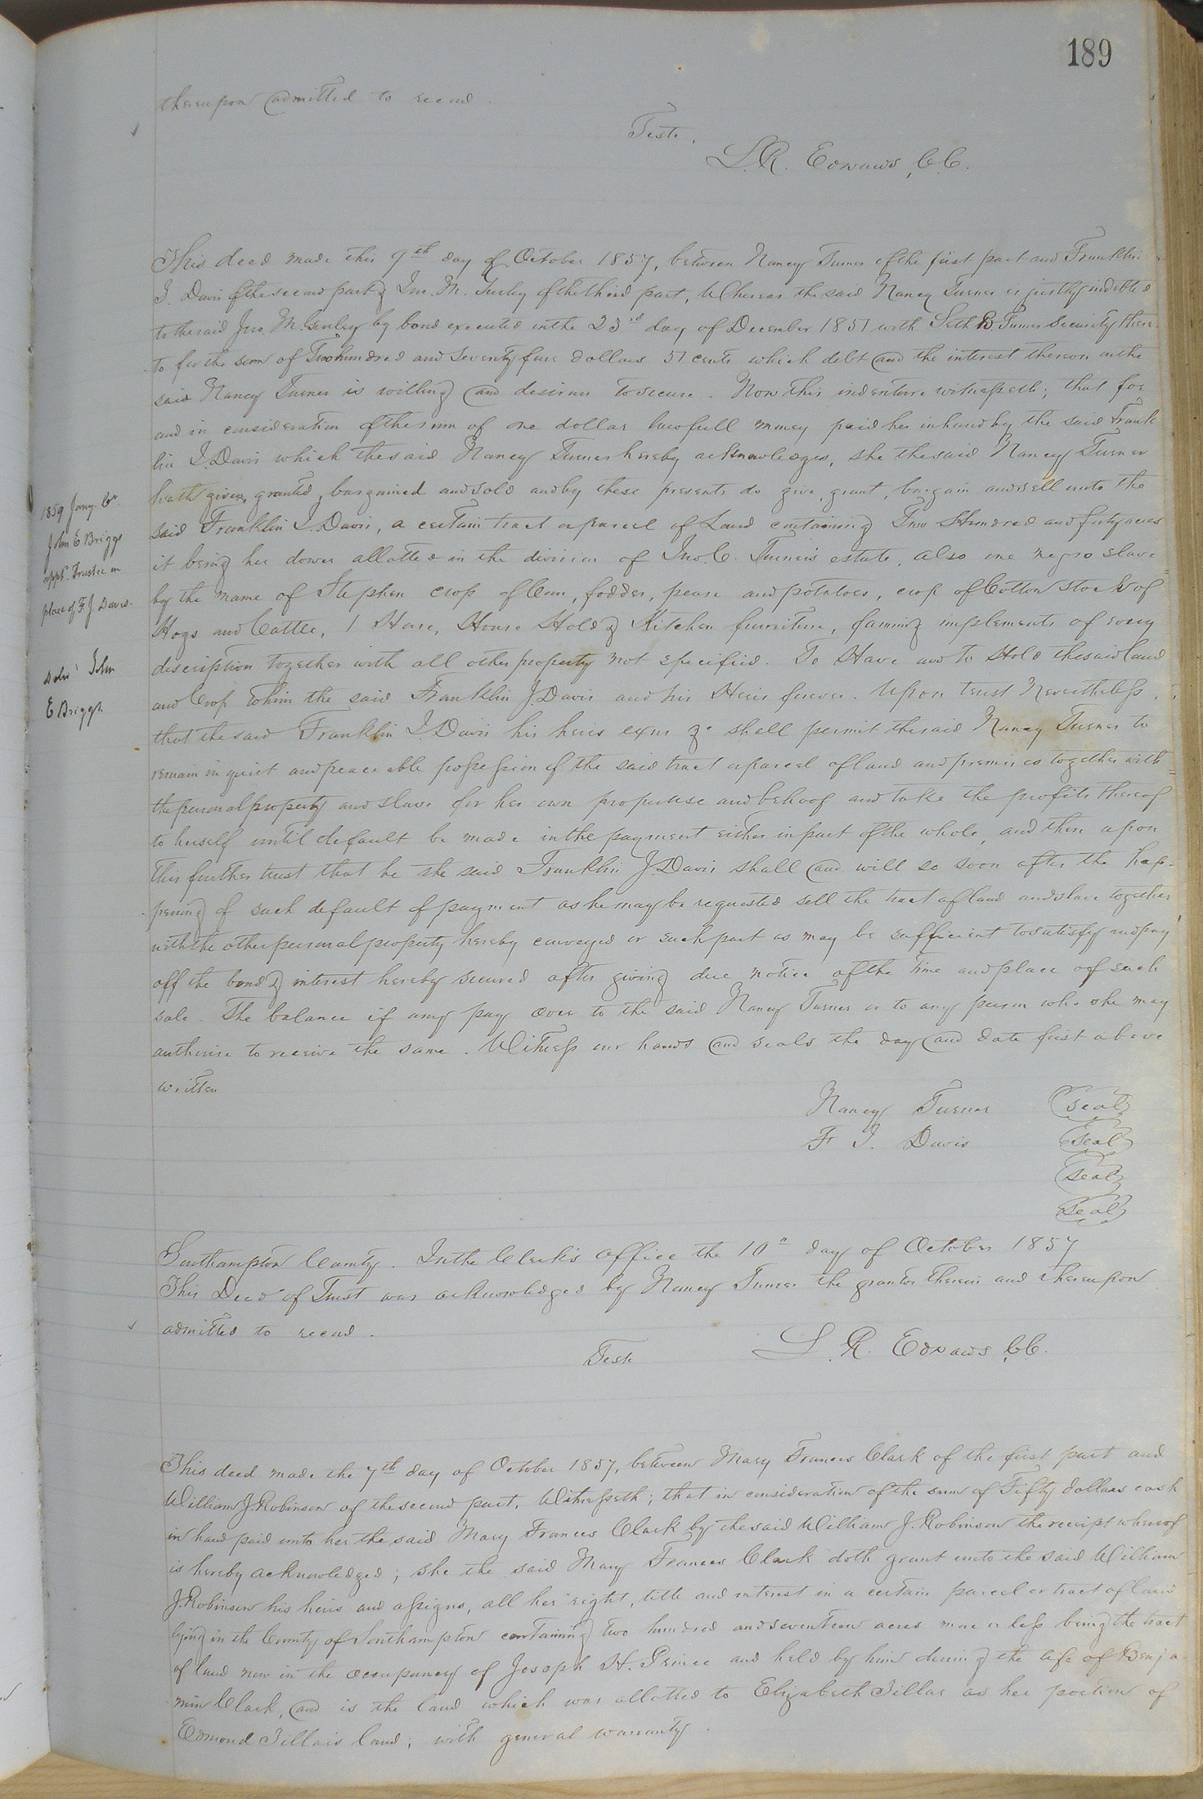 189
thereupon admitted to record.
Teste,
L. R. Edwards, C.C.
This deed made this 9th day of October 1857, between Nancy Turner of the first part and Franklin
J. Davis of the second part & Jno. M. Gurley of the third part, Whereas the said Nancy Turner is justly indebted
to the said Jno. M. Gurley by bond executed on the 23rd day of December 1851 with Seth B Turner security there
to for the sum of Two hundred and seventy four dollars 51 cents which debt and the interest thereon on the
said Nancy Turner is willing and desirous to secure. Now this indenture witnesseth; that for
and in consideration of the sum of one dollar lawfull money paid her in hand by the said Frank
lin J. Davis which the said Nancy Turner hereby acknowledges, she the said Nancy Turner
hath given, granted, bargained and sold and by these presents do give, grant, bargain and sell unto the
said Franklin J. Davis, a certain tract or parcel of Land containing Two Hundred and forty acres
it being her dower allotted in the division of Jno. C. Turner's estate, also one negro slave
by the name of Stephen crop of Corn, fodder, pease and potatoes, crop of Cotton stock of
Hogs and Cattle, 1 Horse, House Hold & Kitchen furniture, farming implements of every
description together with all other property not specified. To Have and to Hold the said land
and Crop to him the said Franklin J. Davis and his Heirs forever. Upon trust Nevertheless,
that the said Franklin J. Davis his heirs exors &c shall permit the said Nancy Turner to
remain in quiet and peaceable possession of the said tract or parcel of land and premises together with
the personal property and slaves for her own proper use and behoof and take the profits thereof
to herself until default be made in the payment either in part of the whole, and then upon
this further trust that he the said Franklin J. Davis shall and will so soon after the hap-
pening of such default of payment as he may be requested sell the tract of land and slave together
with the other personal property hereby conveyed or such part as may be sufficient to satisfy and pay
off the bond & interest hereby secured after giving due notice of the time and place of such
sale. The balance if any pay over to the said Nancy Turner or to any person who she may
authorise to receive the same. Witness our hands and seals the day and date first above
written
1859 Jany 6th
John E Briggs
appt. Trustee in
place of F J Davis.
John
E Briggs
Nancy Turner (seal)
F J. Davis (seal)
(seal)
(seal)
Southampton County. In the Clerk's office the 10th day of October 1857
This Deed of Trust was acknowledged by Nancy Turner the grantor therein and thereupon
admitted to record.
Teste L. R. Edwards C.C.
This deed made the 7th day of October 1857, between Mary Frances Clark of the first part and
William J. Robinson of the second part, Witnesseth; that in consideration of the sum of Fifty dollars cash
in hand paid unto her the said Mary Frances Clark by the said William J. Robinson the receipt whereof
is hereby acknowledged; she the said Mary Frances Clark doth grant unto the said William
J. Robinson his heirs and assigns, all her right, title and interest in a certain parcel or tract of land
lying in the County of Southampton containing two hundred and seventeen acres more or less being the tract
of land now in the occupancy of Joseph H. Prince and held by him during the life of Benja
min Clark, and is the land which was allotted to Elizabeth Tillar as her portion of
Edmond Tillar's land; with general warranty.